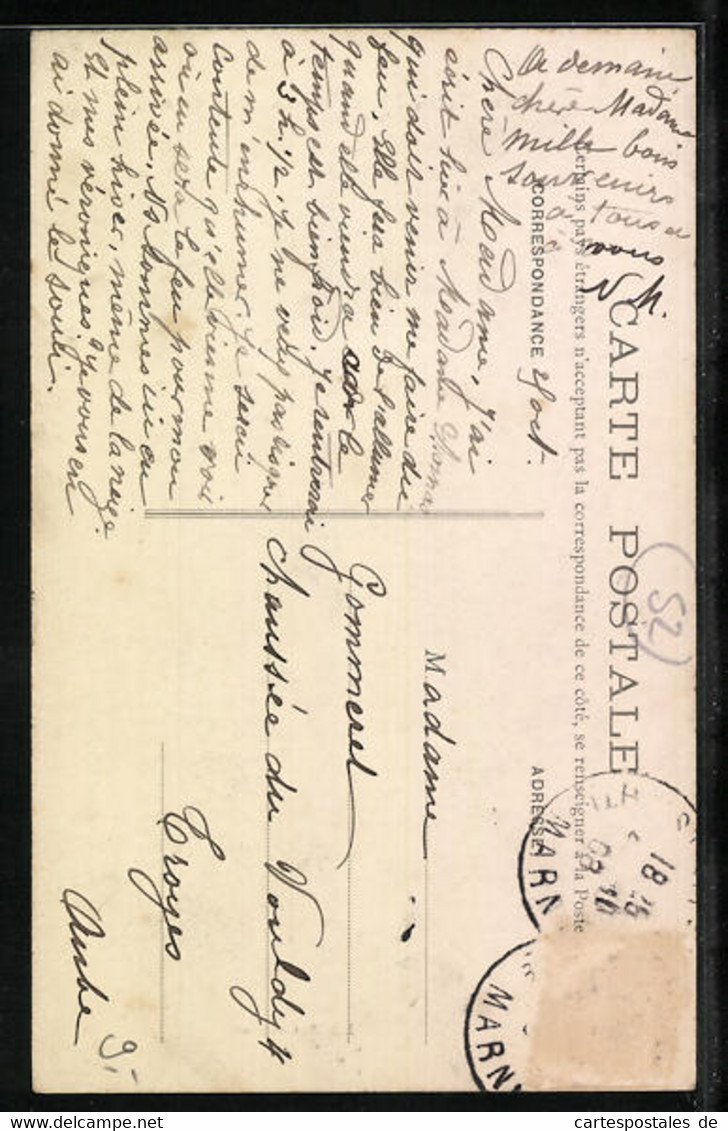 CARTE POSTALE
Certains pays étrangers n'acceptent pas la correspondance de ce côté, se renseigner à la Poste
CORRESPONDANCE
ADRESSE
Chère Madame, j'ai
écrit hier à Madame
qui doit venir me faire du
feu. Elle fera bien de l'allumer
quand elle viendra car le
temps est bien froid. Je rentrerai
à 3 h 1/2. Je ne veux pas risquer
de m'enrhumer. Je serai
contente qu'elle vienne voir
où en sera le feu pour mon
arrivée. Nous sommes ici en
plein hiver, même de la neige.
Et mes véroniques? Je vous en
ai donné le souci.
A demain
chère Madame
mille bons
souvenirs
à tous
vous
Madame
Gommerel
chaussée du Vouldy 4
Troyes
Aube
52
9,-
18
MARN
MARN
cartespostales.de